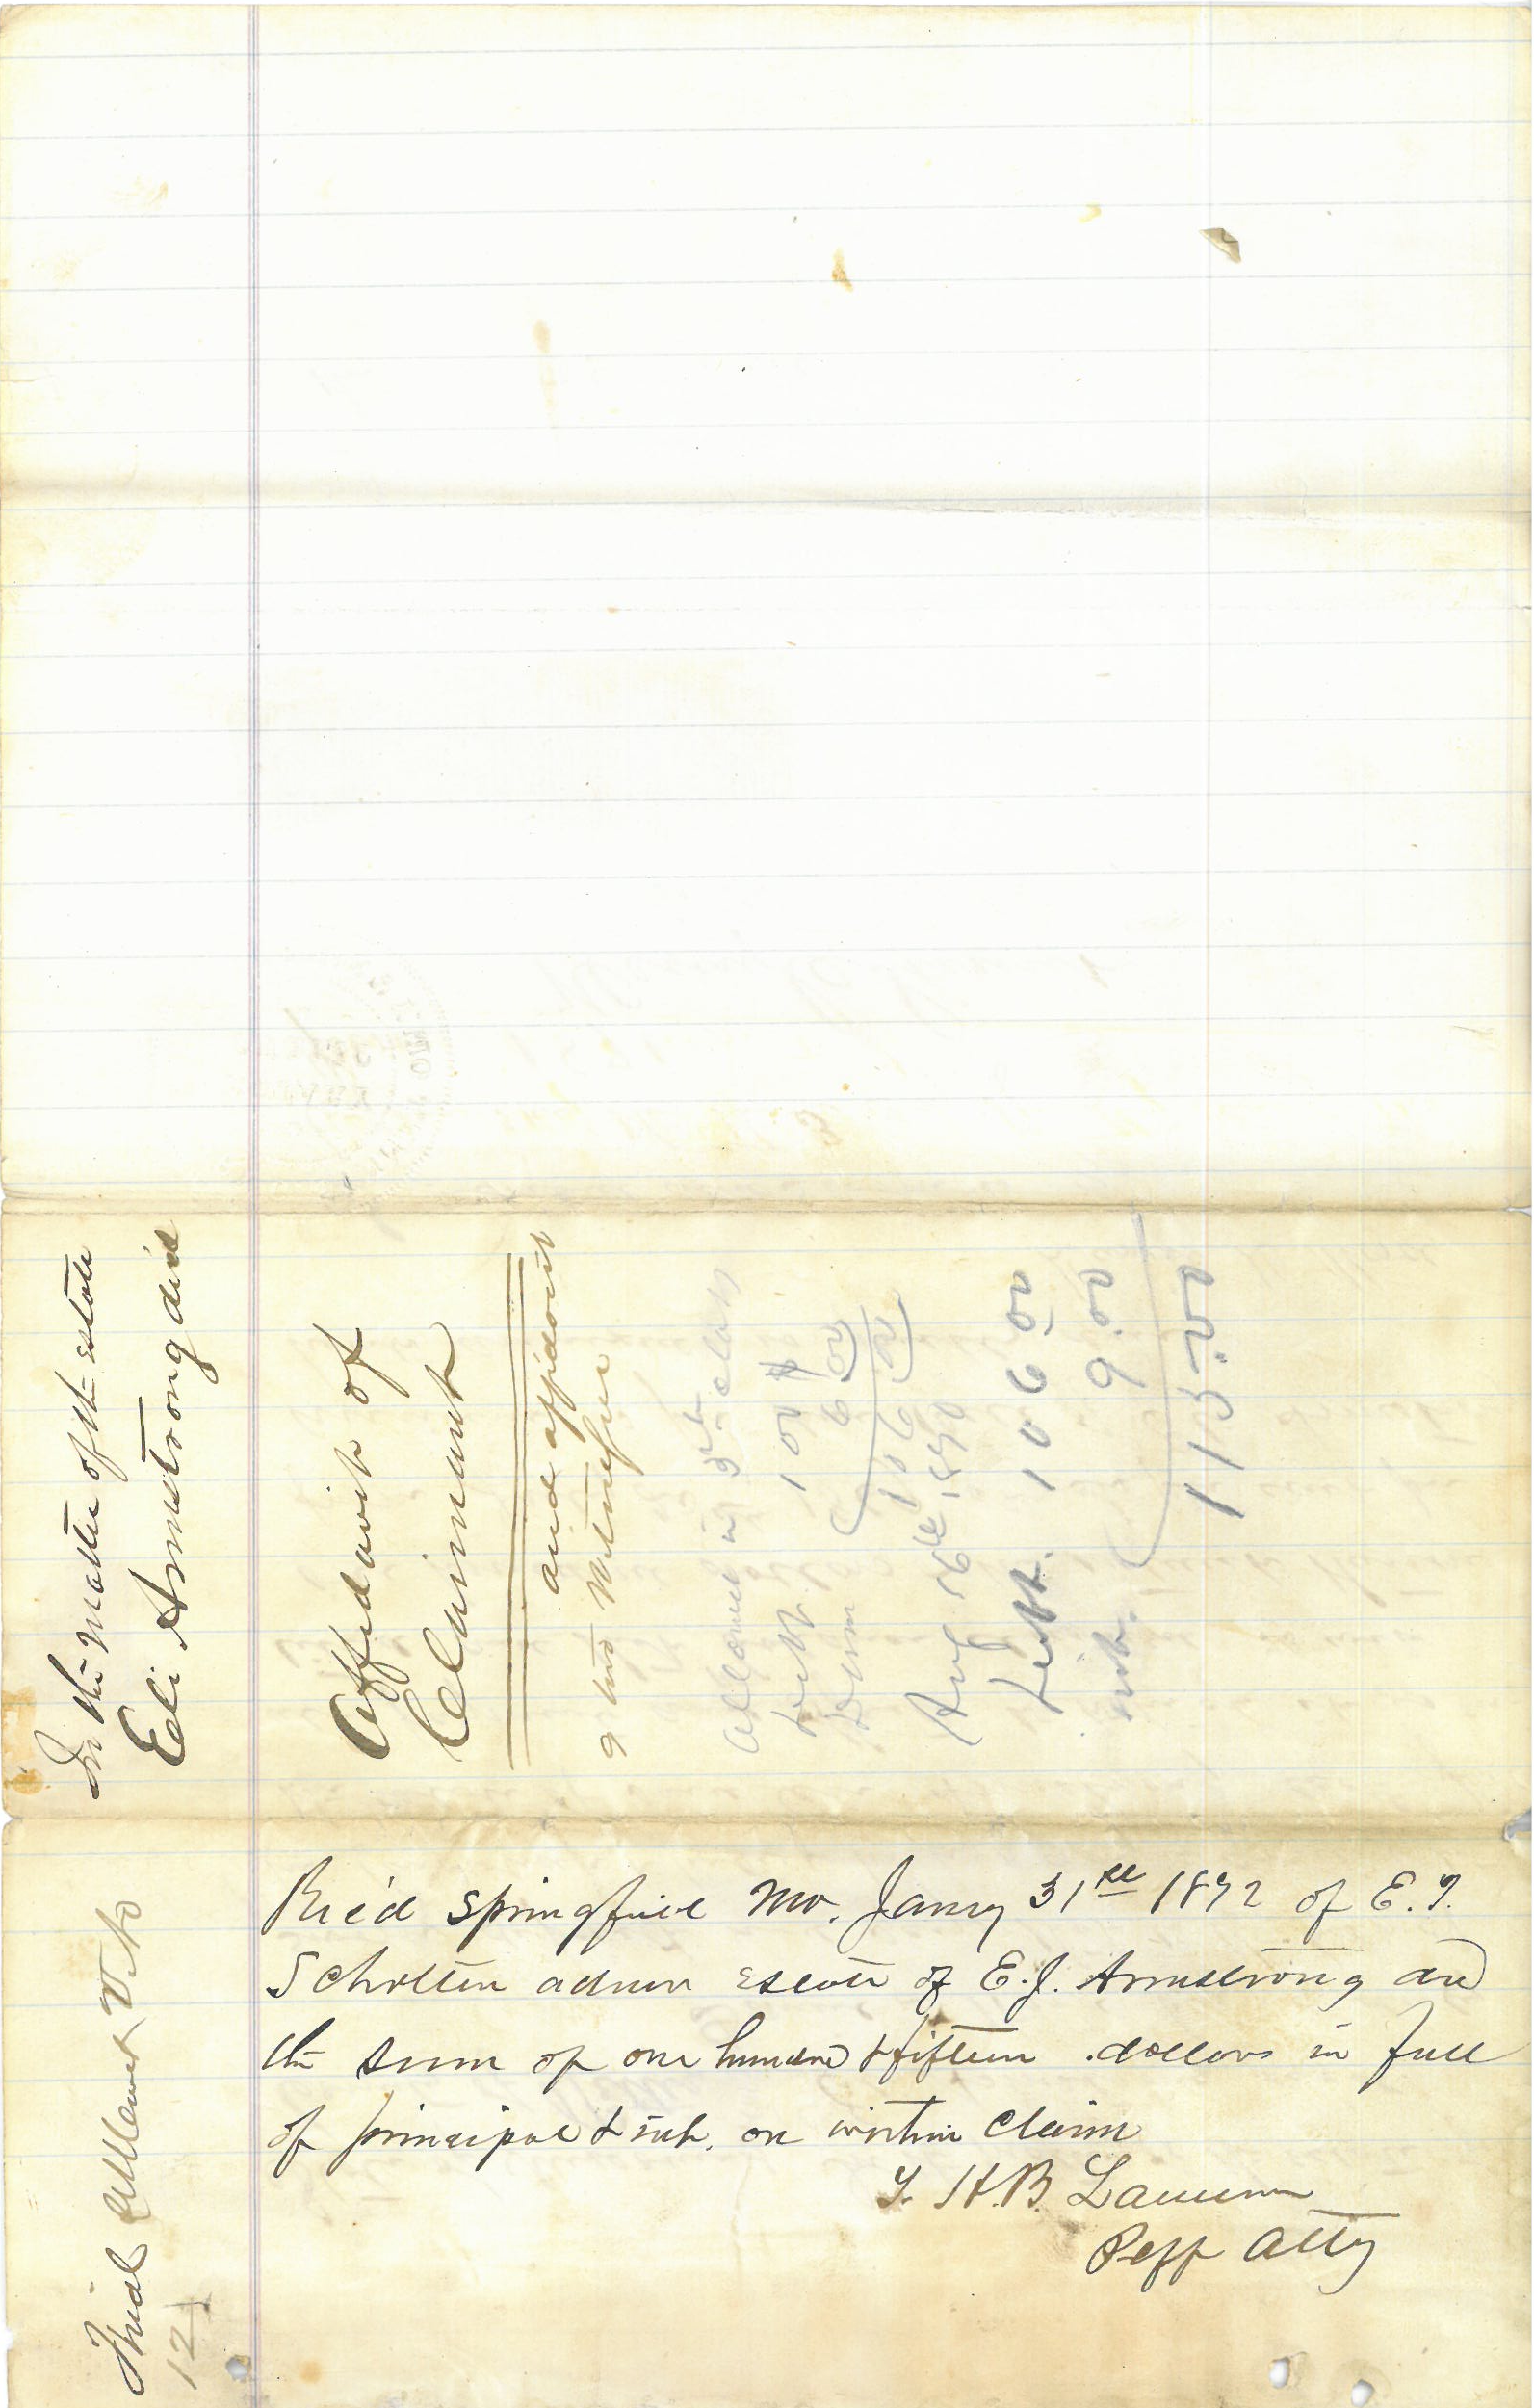 In the Matter of the estate
Eli Armstrong decd
Affidavit of
Claimant
and affidavit
of two Witnesses
Allowed in 5th class
Debt 100
6 00
106 00
Aug 16th 1870
Debt. 106.00
int. 9.00
115.00
Final
121
Rec'd Springfield Mo. Jany 31st 1872 of E. T.
Scholten admr estate of E. J. Armstrong decd
the sum of one hundred & fifteen dollars in full
of principal & int. on within claim
H. B.
Peff Atty